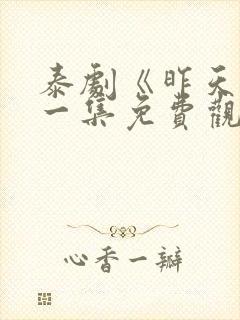 泰劇《昨天
一集免費觀
心香一瓣